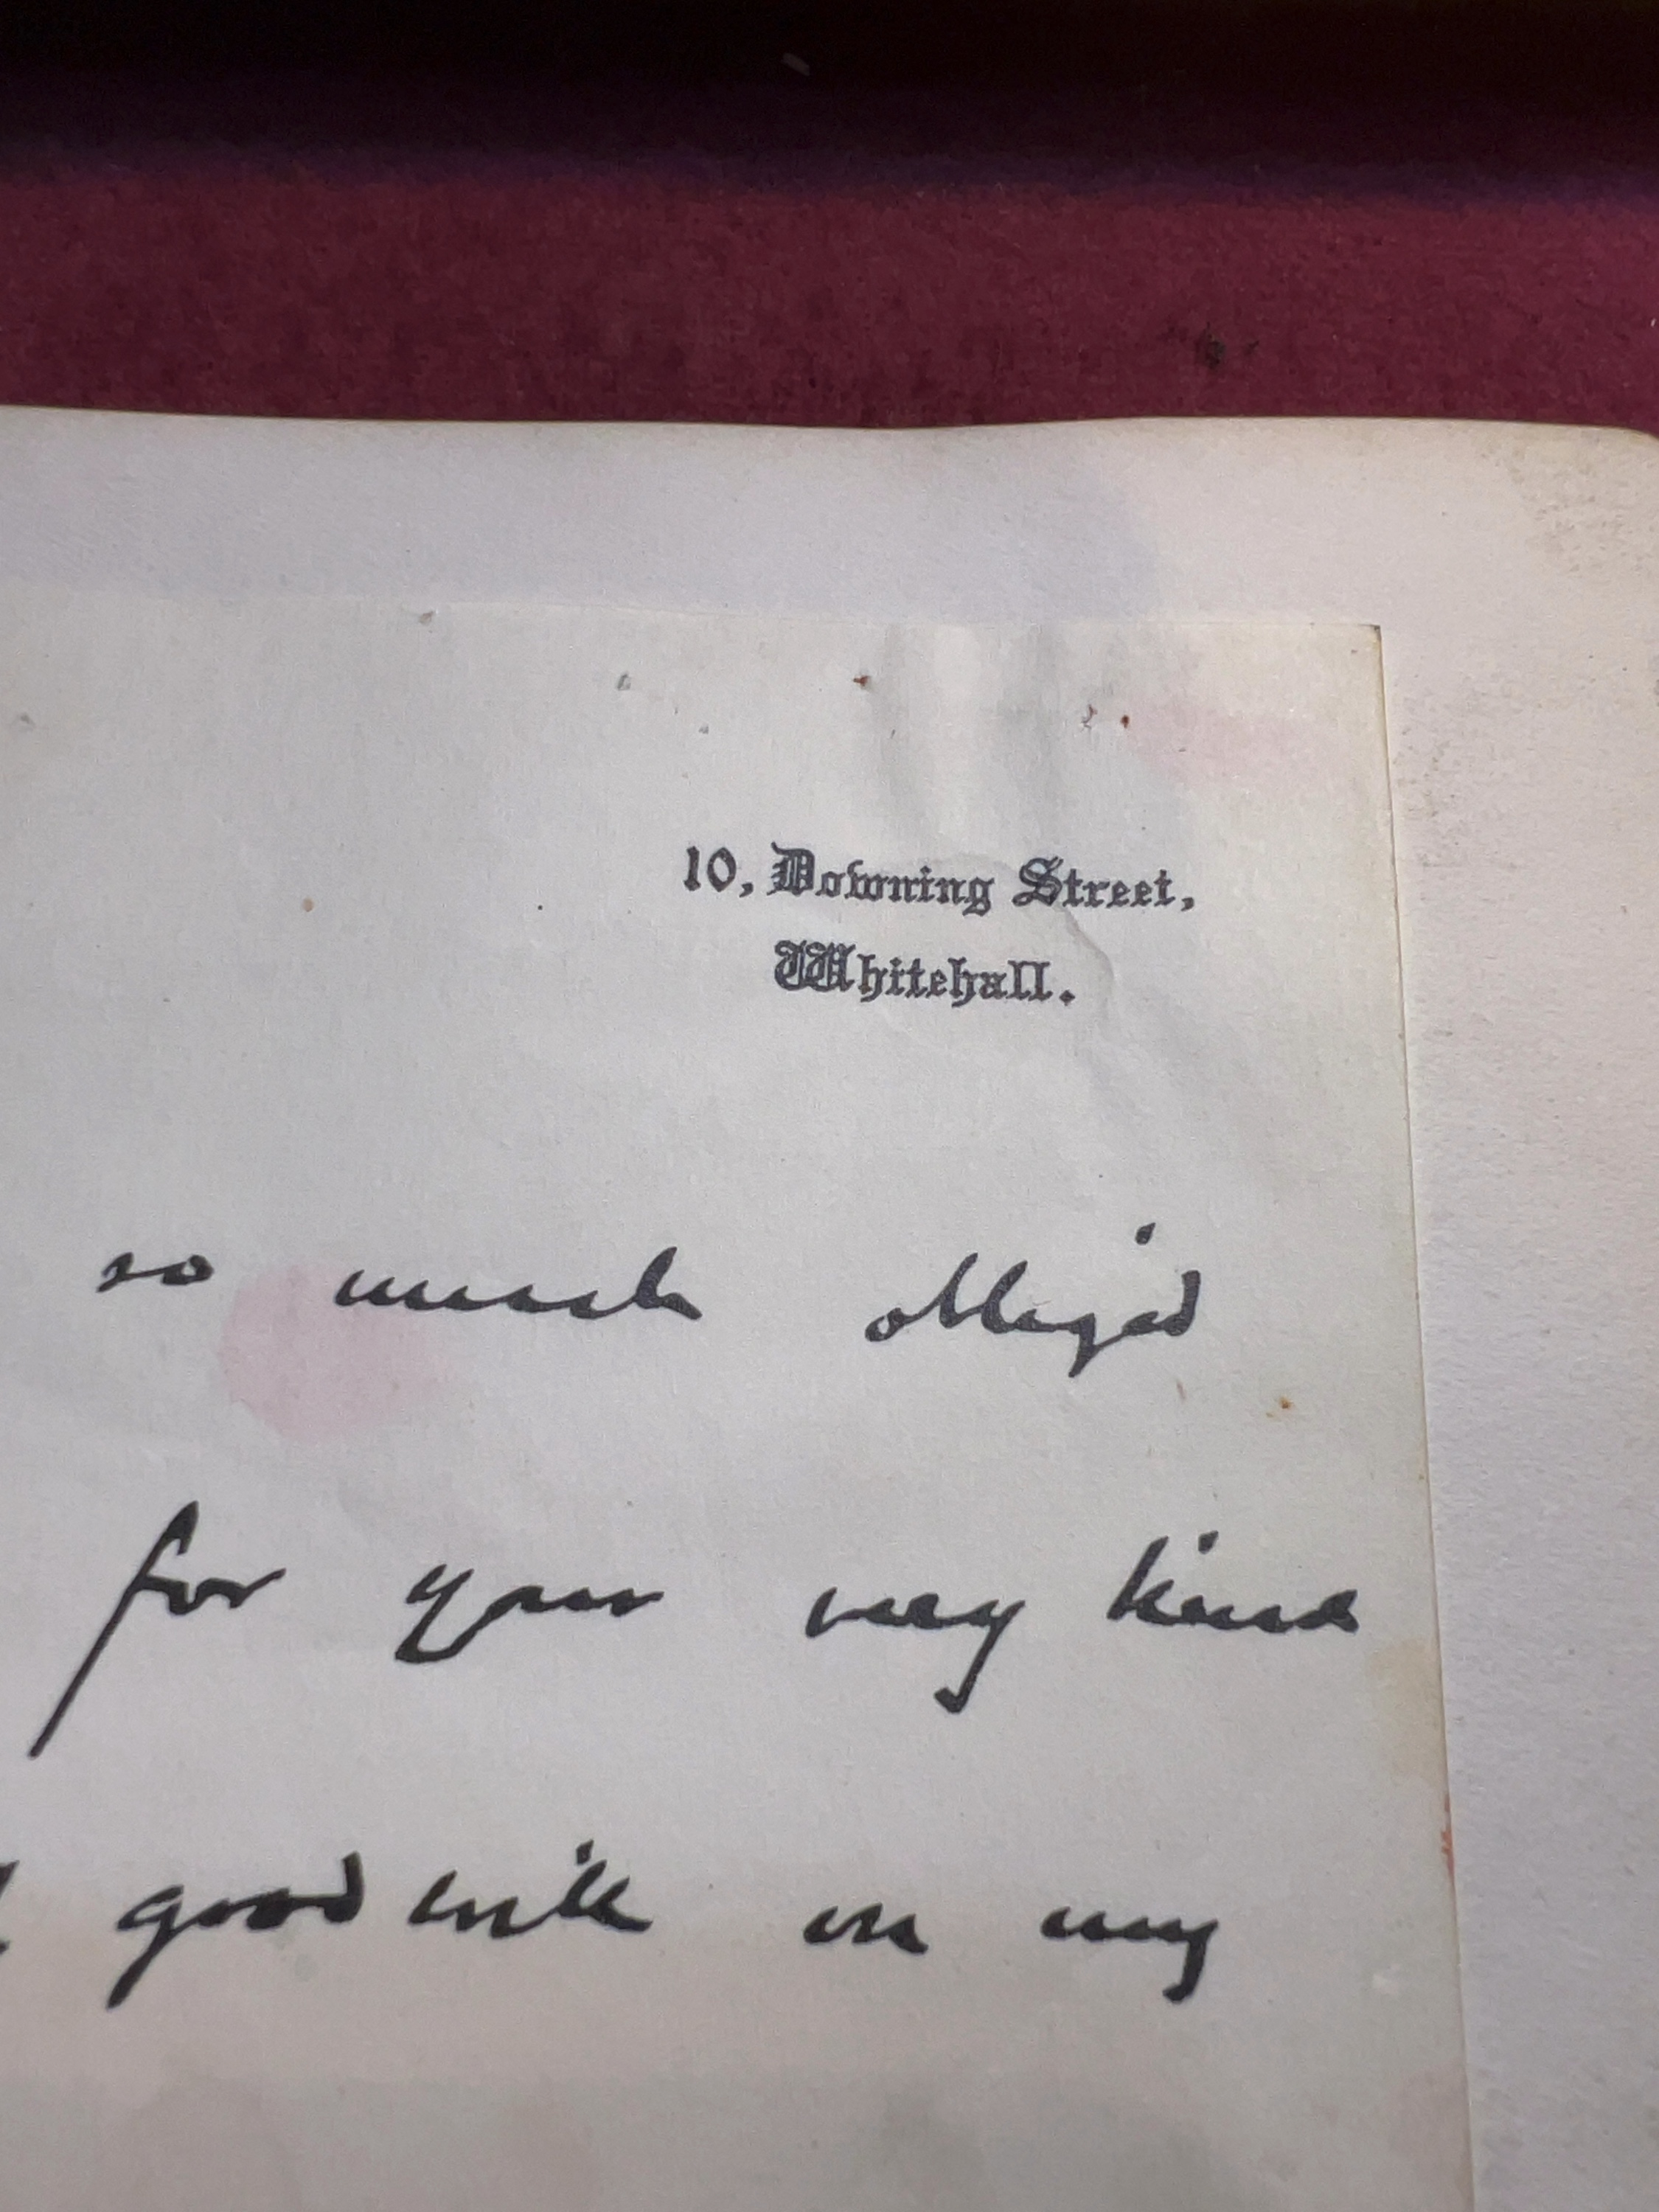 10, Downing Street,
Whitehall.
so much obliged
for your very kind
good will on my